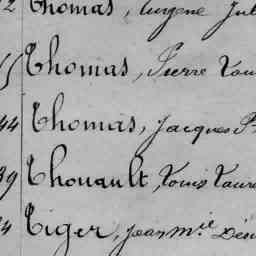 2 Thomas, Eugène Jul
5 Thomas, Pierre Lou
44 Thomas, Jacques P
39 Thouault, Louis Laur
4 Tiger, Jean Mie Dés